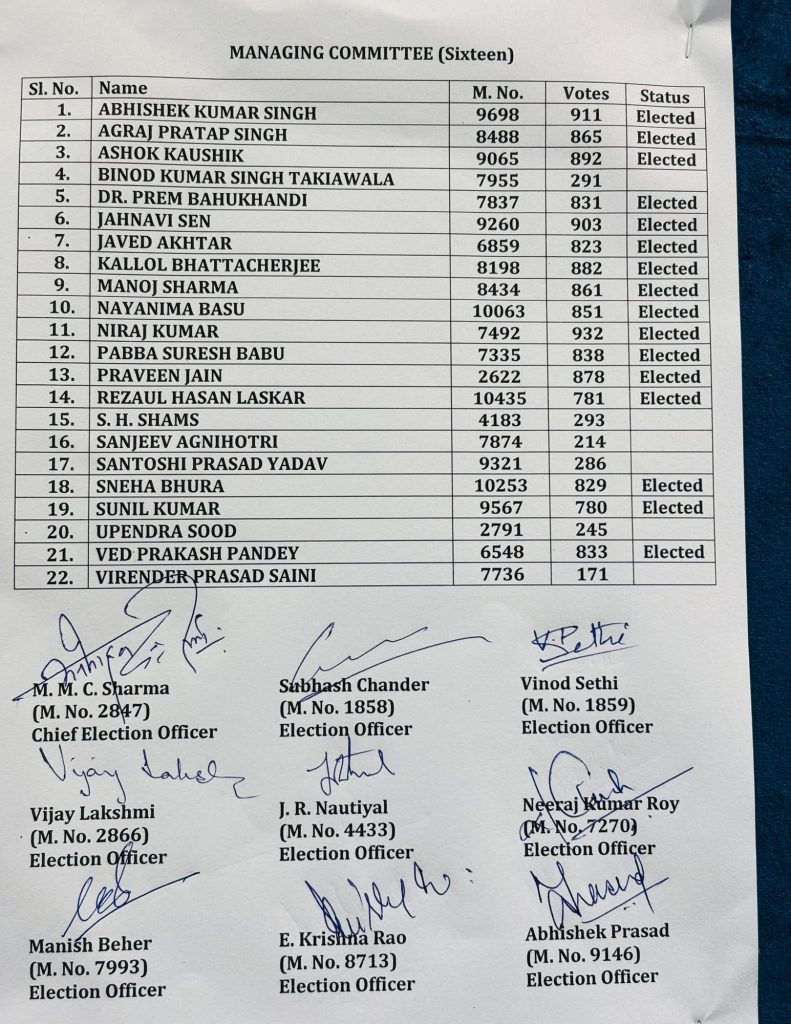 MANAGING COMMITTEE (Sixteen)
Sl. No. Name M. No. Votes Status
1. ABHISHEK KUMAR SINGH 9698 911 Elected
2. AGRAJ PRATAP SINGH 8488 865 Elected
3. ASHOK KAUSHIK 9065 892 Elected
4. BINOD KUMAR SINGH TAKIAWALA 7955 291
5. DR. PREM BAHUKHANDI 7837 831 Elected
6. JAHNAVI SEN 9260 903 Elected
7. JAVED AKHTAR 6859 823 Elected
8. KALLOL BHATTACHERJEE 8198 882 Elected
9. MANOJ SHARMA 8434 861 Elected
10. NAYANIMA BASU 10063 851 Elected
11. NIRAJ KUMAR 7492 932 Elected
12. PABBA SURESH BABU 7335 838 Elected
13. PRAVEEN JAIN 2622 878 Elected
14. REZAUL HASAN LASKAR 10435 781 Elected
15. S. H. SHAMS 4183 293
16. SANJEEV AGNIHOTRI 7874 214
17. SANTOSHI PRASAD YADAV 9321 286
18. SNEHA BHURA 10253 829 Elected
19. SUNIL KUMAR 9567 780 Elected
20. UPENDRA SOOD 2791 245
21. VED PRAKASH PANDEY 6548 833 Elected
22. VIRENDER PRASAD SAINI 7736 171
V.P Sethi
M. M. C. Sharma Subhash Chander Vinod Sethi
(M. No. 2847) (M. No. 1858) (M. No. 1859)
Chief Election Officer Election Officer Election Officer
Vijay
Vijay Lakshmi J. R. Nautiyal Neeraj Kumar Roy
(M. No. 2866) (M. No. 4433) (M. No. 7270)
Election Officer Election Officer Election Officer
Manish Beher E. Krishna Rao Abhishek Prasad
(M. No. 7993) (M. No. 8713) (M. No. 9146)
Election Officer Election Officer Election Officer